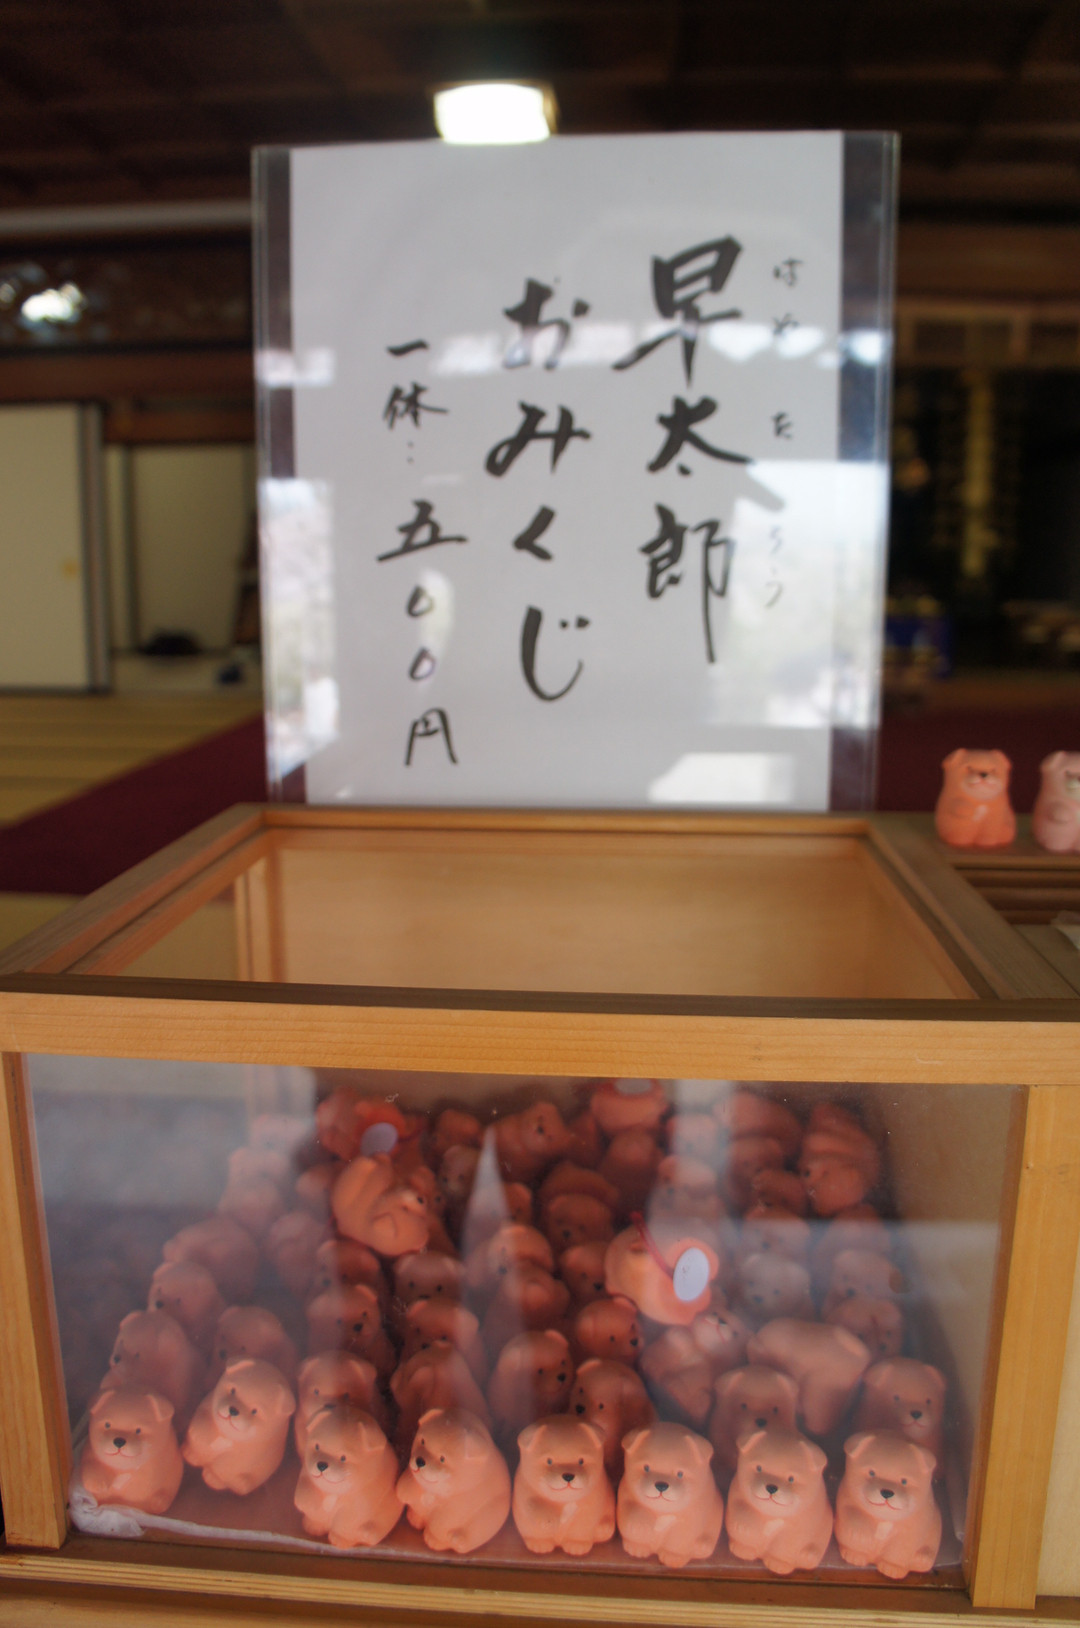 早太郎
はやたろう
おみくじ
一体…五〇〇円